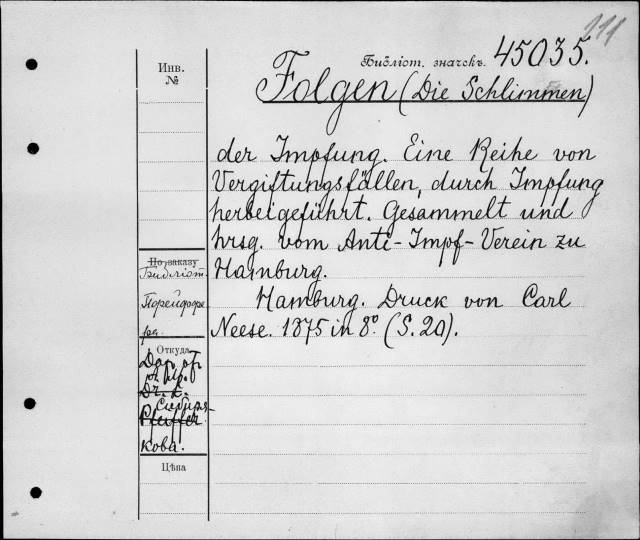 111
Библіот. значекъ. 45035.
Инв.
№
Folgen (Die Schlimmen)
der Impfung. Eine Reihe von
Vergiftungsfällen, durch Impfung
herbeigeführt. Gesammelt und
hrsg. vom Anti-Impf-Verein zu
Hamburg.
Hamburg. Druck von Carl
Neese. 1875 in 8º. (S. 20).
По заказу
Библіот.
Порейфофе
ра.
Откуда
Dr.
Сибиря-
Pfeiffer
кова.
Цѣна